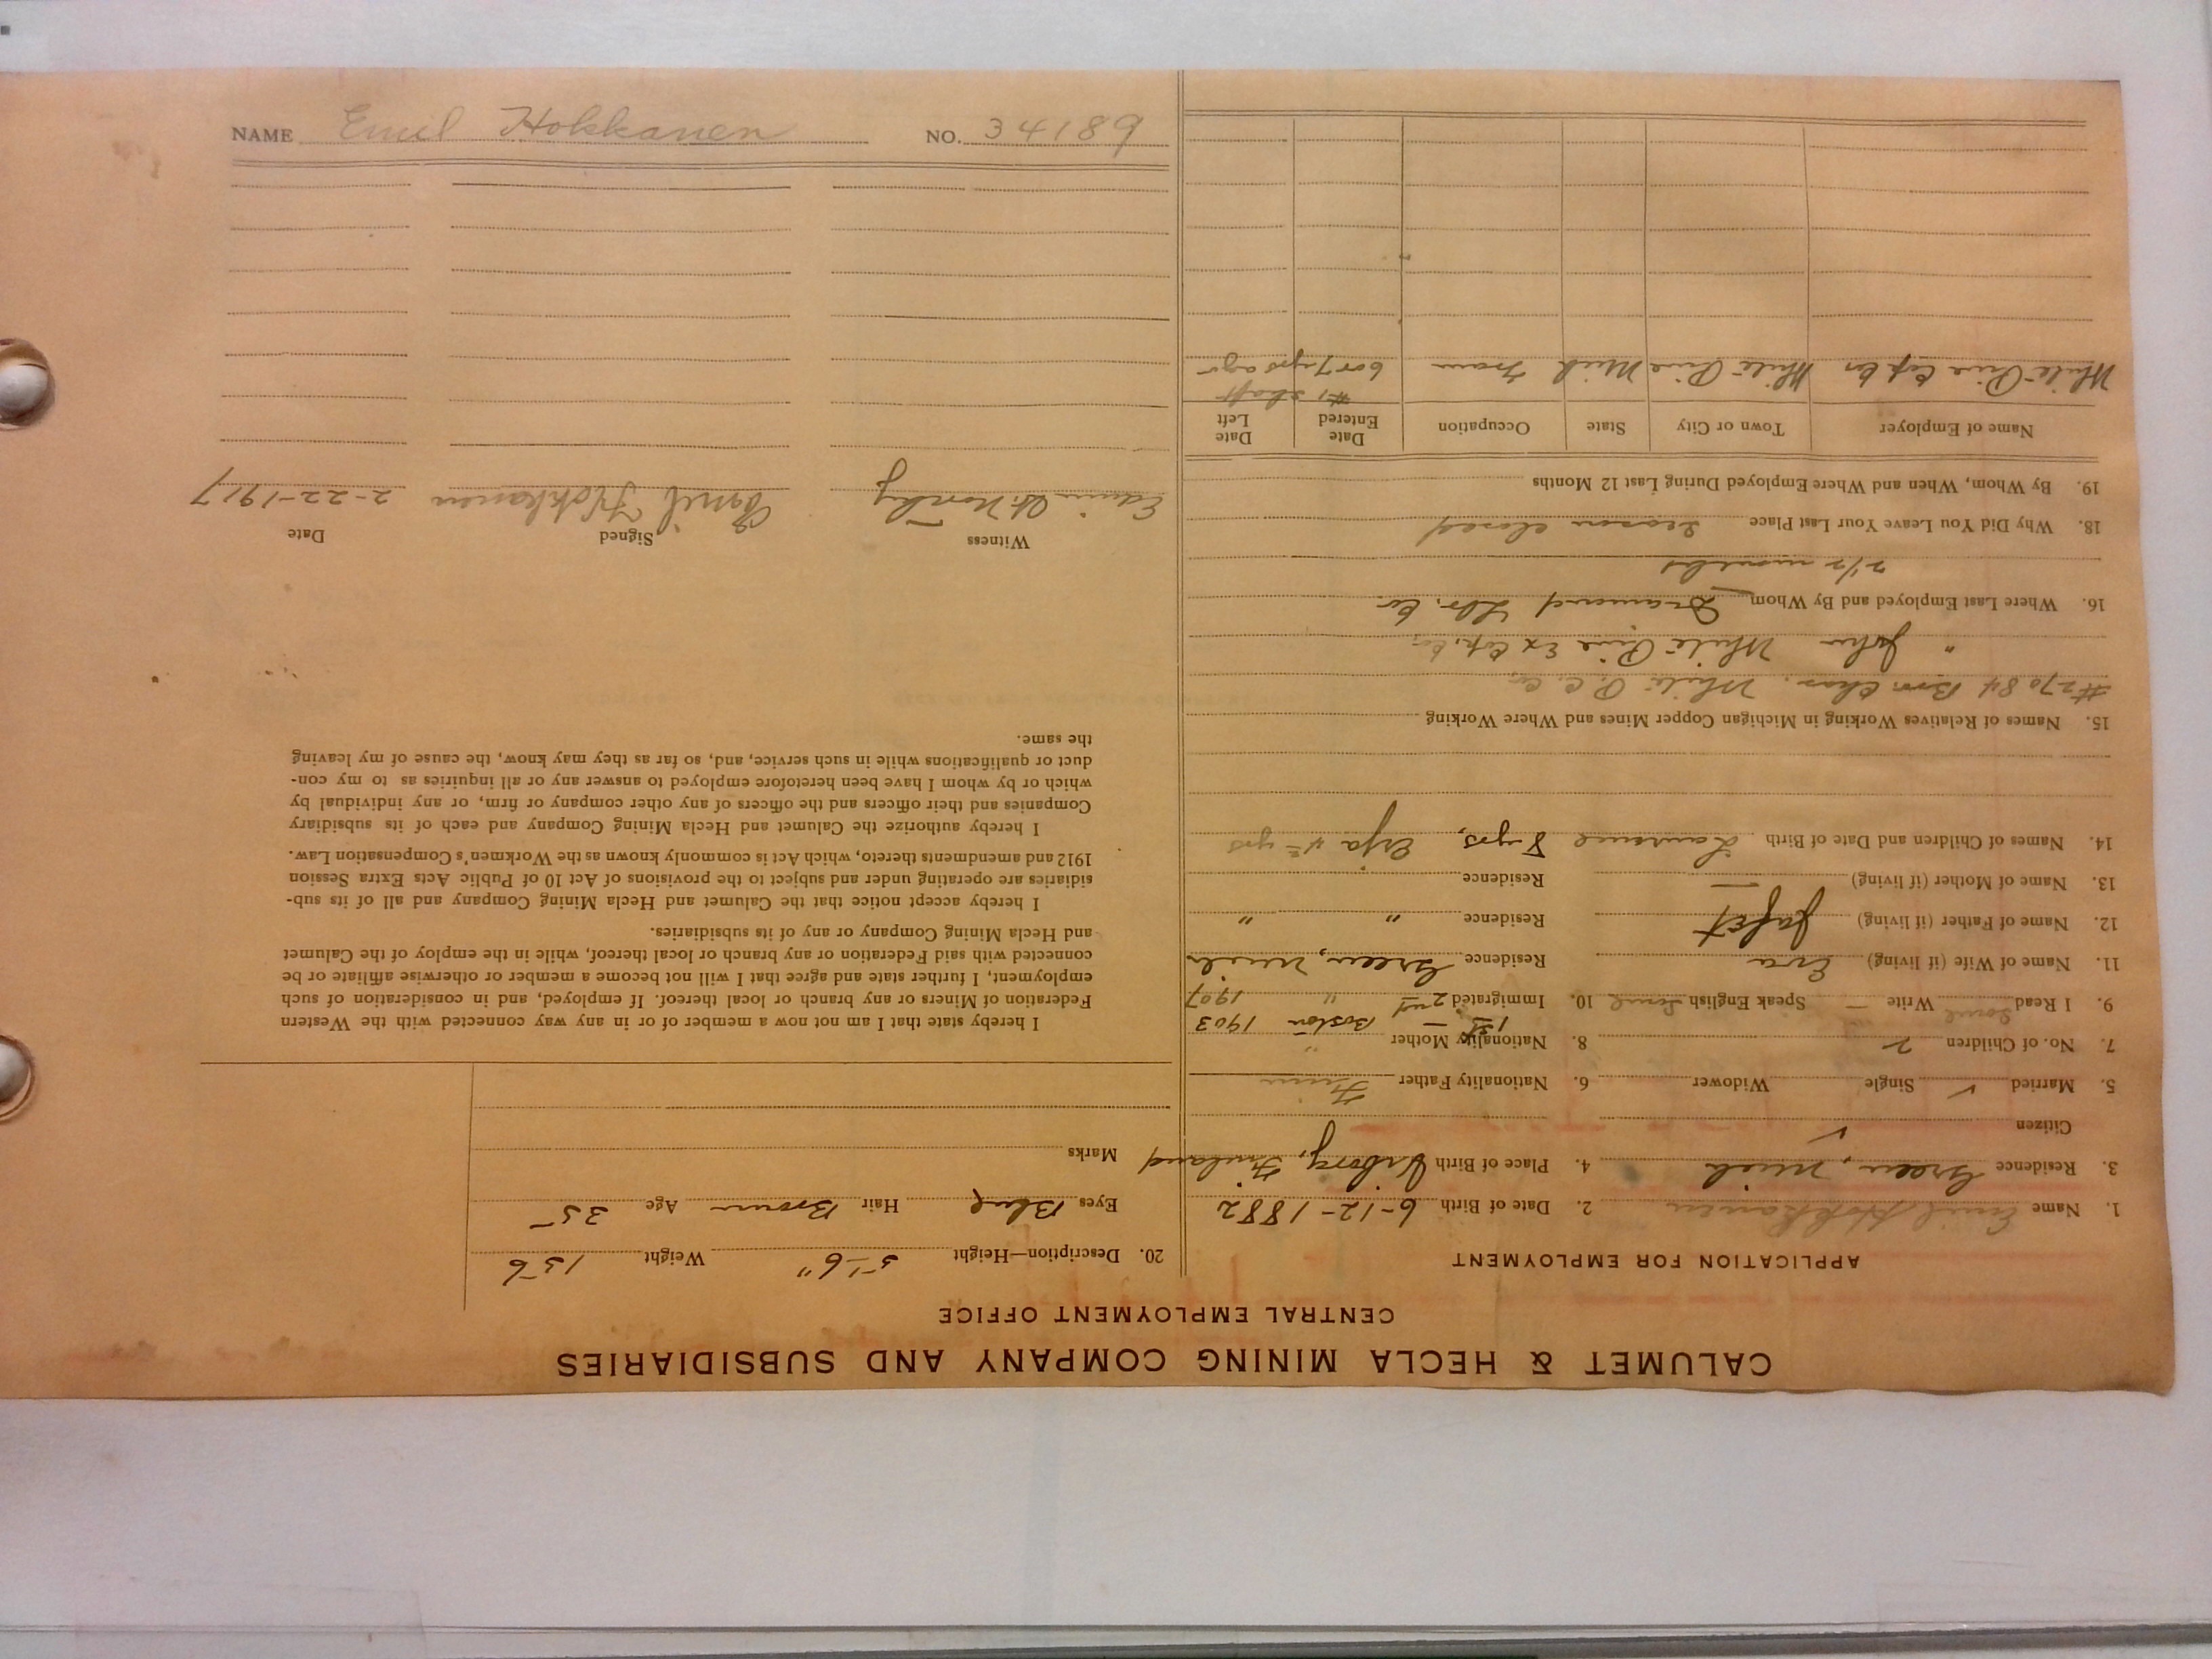 CALUMET & HECLA MINING COMPANY AND SUBSIDIARIES
CENTRAL EMPLOYMENT OFFICE
APPLICATION FOR EMPLOYMENT
1. Name Emil Hokkanen 2. Date of Birth 6-12-1882
3. Residence Green, Mich 4. Place of Birth Viborg, Finland
Citizen ✓
5. Married ✓ Single Widower 6. Nationality Father Finn
7. No. of Children 2 8. Nationality Mother "
1st — Boston 1903
9. I Read some Write — Speak English some 10. Immigrated 2nd " 1907
11. Name of Wife (if living) Eva Residence Green, Mich
12. Name of Father (if living) Jafet Residence " "
13. Name of Mother (if living) — Residence
14. Names of Children and Date of Birth Lawrence 8 yrs, 4 yrs
15. Names of Relatives Working in Michigan Copper Mines and Where Working
#27084 Bro. Chas. White P. C. Co.
" John White Pine Ex Cop. Co.
16. Where Last Employed and By Whom Lbr. Co
2 1/2 months
18. Why Did You Leave Your Last Place Season closed
19. By Whom, When and Where Employed During Last 12 Months
Name of Employer Town or City State Occupation Date Entered Date Left
#1 shaft
White Pine Cop Co White Pine Mich Tram 6 or 7 yrs ago
20. Description—Height 5'-6" Weight 156
Eyes Blue Hair Brown Age 35
Marks
I hereby state that I am not now a member of or in any way connected with the Western
Federation of Miners or any branch or local thereof. If employed, and in consideration of such
employment, I further state and agree that I will not become a member or otherwise affiliate or be
connected with said Federation or any branch or local thereof, while in the employ of the Calumet
and Hecla Mining Company or any of its subsidiaries.
I hereby accept notice that the Calumet and Hecla Mining Company and all of its sub-
sidiaries are operating under and subject to the provisions of Act 10 of Public Acts Extra Session
1912 and amendments thereto, which Act is commonly known as the Workmen's Compensation Law.
I hereby authorize the Calumet and Hecla Mining Company and each of its subsidiary
Companies and their officers and the officers of any other company or firm, or any individual by
which or by whom I have been heretofore employed to answer any or all inquiries as to my con-
duct or qualifications while in such service, and, so far as they may know, the cause of my leaving
the same.
Witness Signed Date
Edwin Emil Hokkanen 2-22-1917
NAME Emil Hokkanen NO. 34189